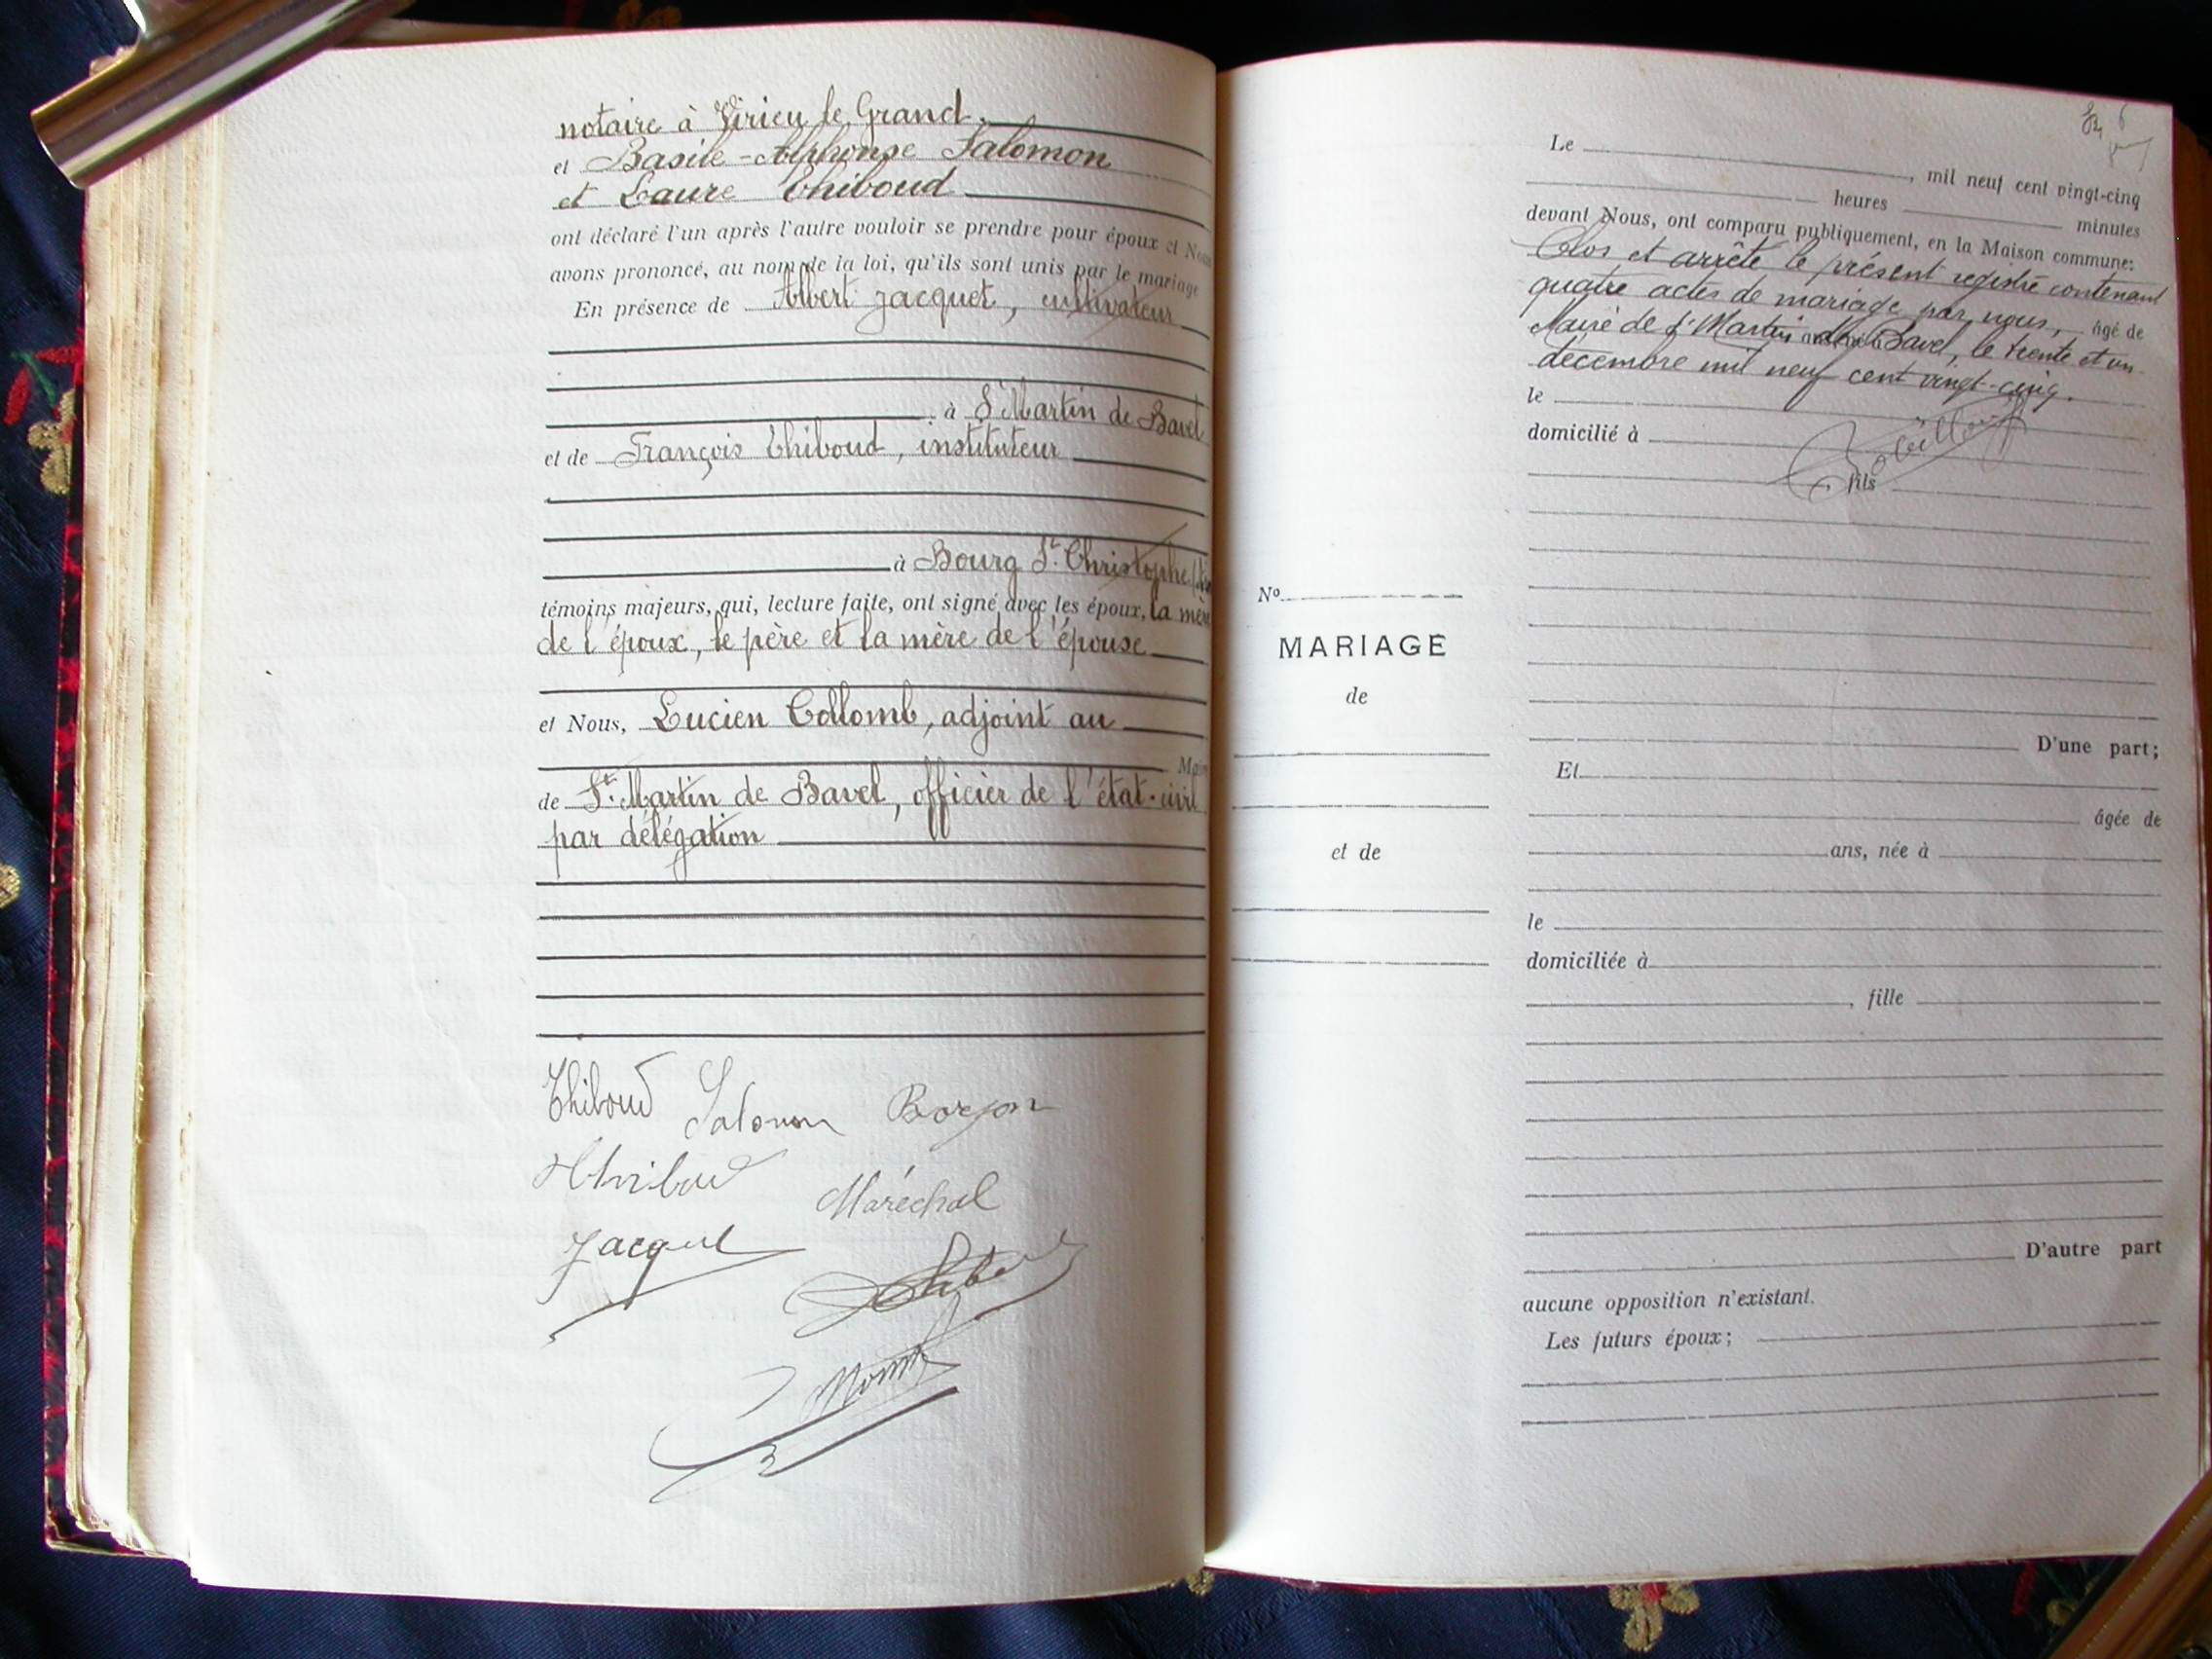 notaire à Virieu le Grand.
et Basile-Alphonse Salomon
et Laure Thiboud
ont déclaré l'un après l'autre vouloir se prendre pour époux et Nous
avons prononcé, au nom de la loi, qu'ils sont unis par le mariage
En présence de Albert Jacquet, cultivateur
à St Martin de Bavel
et de François Thiboud, instituteur
à Bourg St. Christophe
témoins majeurs, qui, lecture faite, ont signé avec les époux, la mère
de l'époux, le père et la mère de l'épouse
et Nous, Lucien Collomb, adjoint au
Maire
de St. Martin de Bavel, officier de l'état-civil
par délégation
Thiboud Salomon Borjon
Thiboud Maréchal
Jacquet
Le , mil neuf cent vingt-cinq
heures minutes
devant Nous, ont comparu publiquement, en la Maison commune:
Clos et arrêté le présent registre contenant
quatre actes de mariage par nous, âgé de
Maire de St Martin de Bavel, le trente et un
décembre mil neuf cent vingt-cinq.
le
domicilié à
fils
No
MARIAGE
de
et de
D'une part;
Et
âgée de
ans, née à
le
domiciliée à
, fille
D'autre part
aucune opposition n'existant.
Les futurs époux;